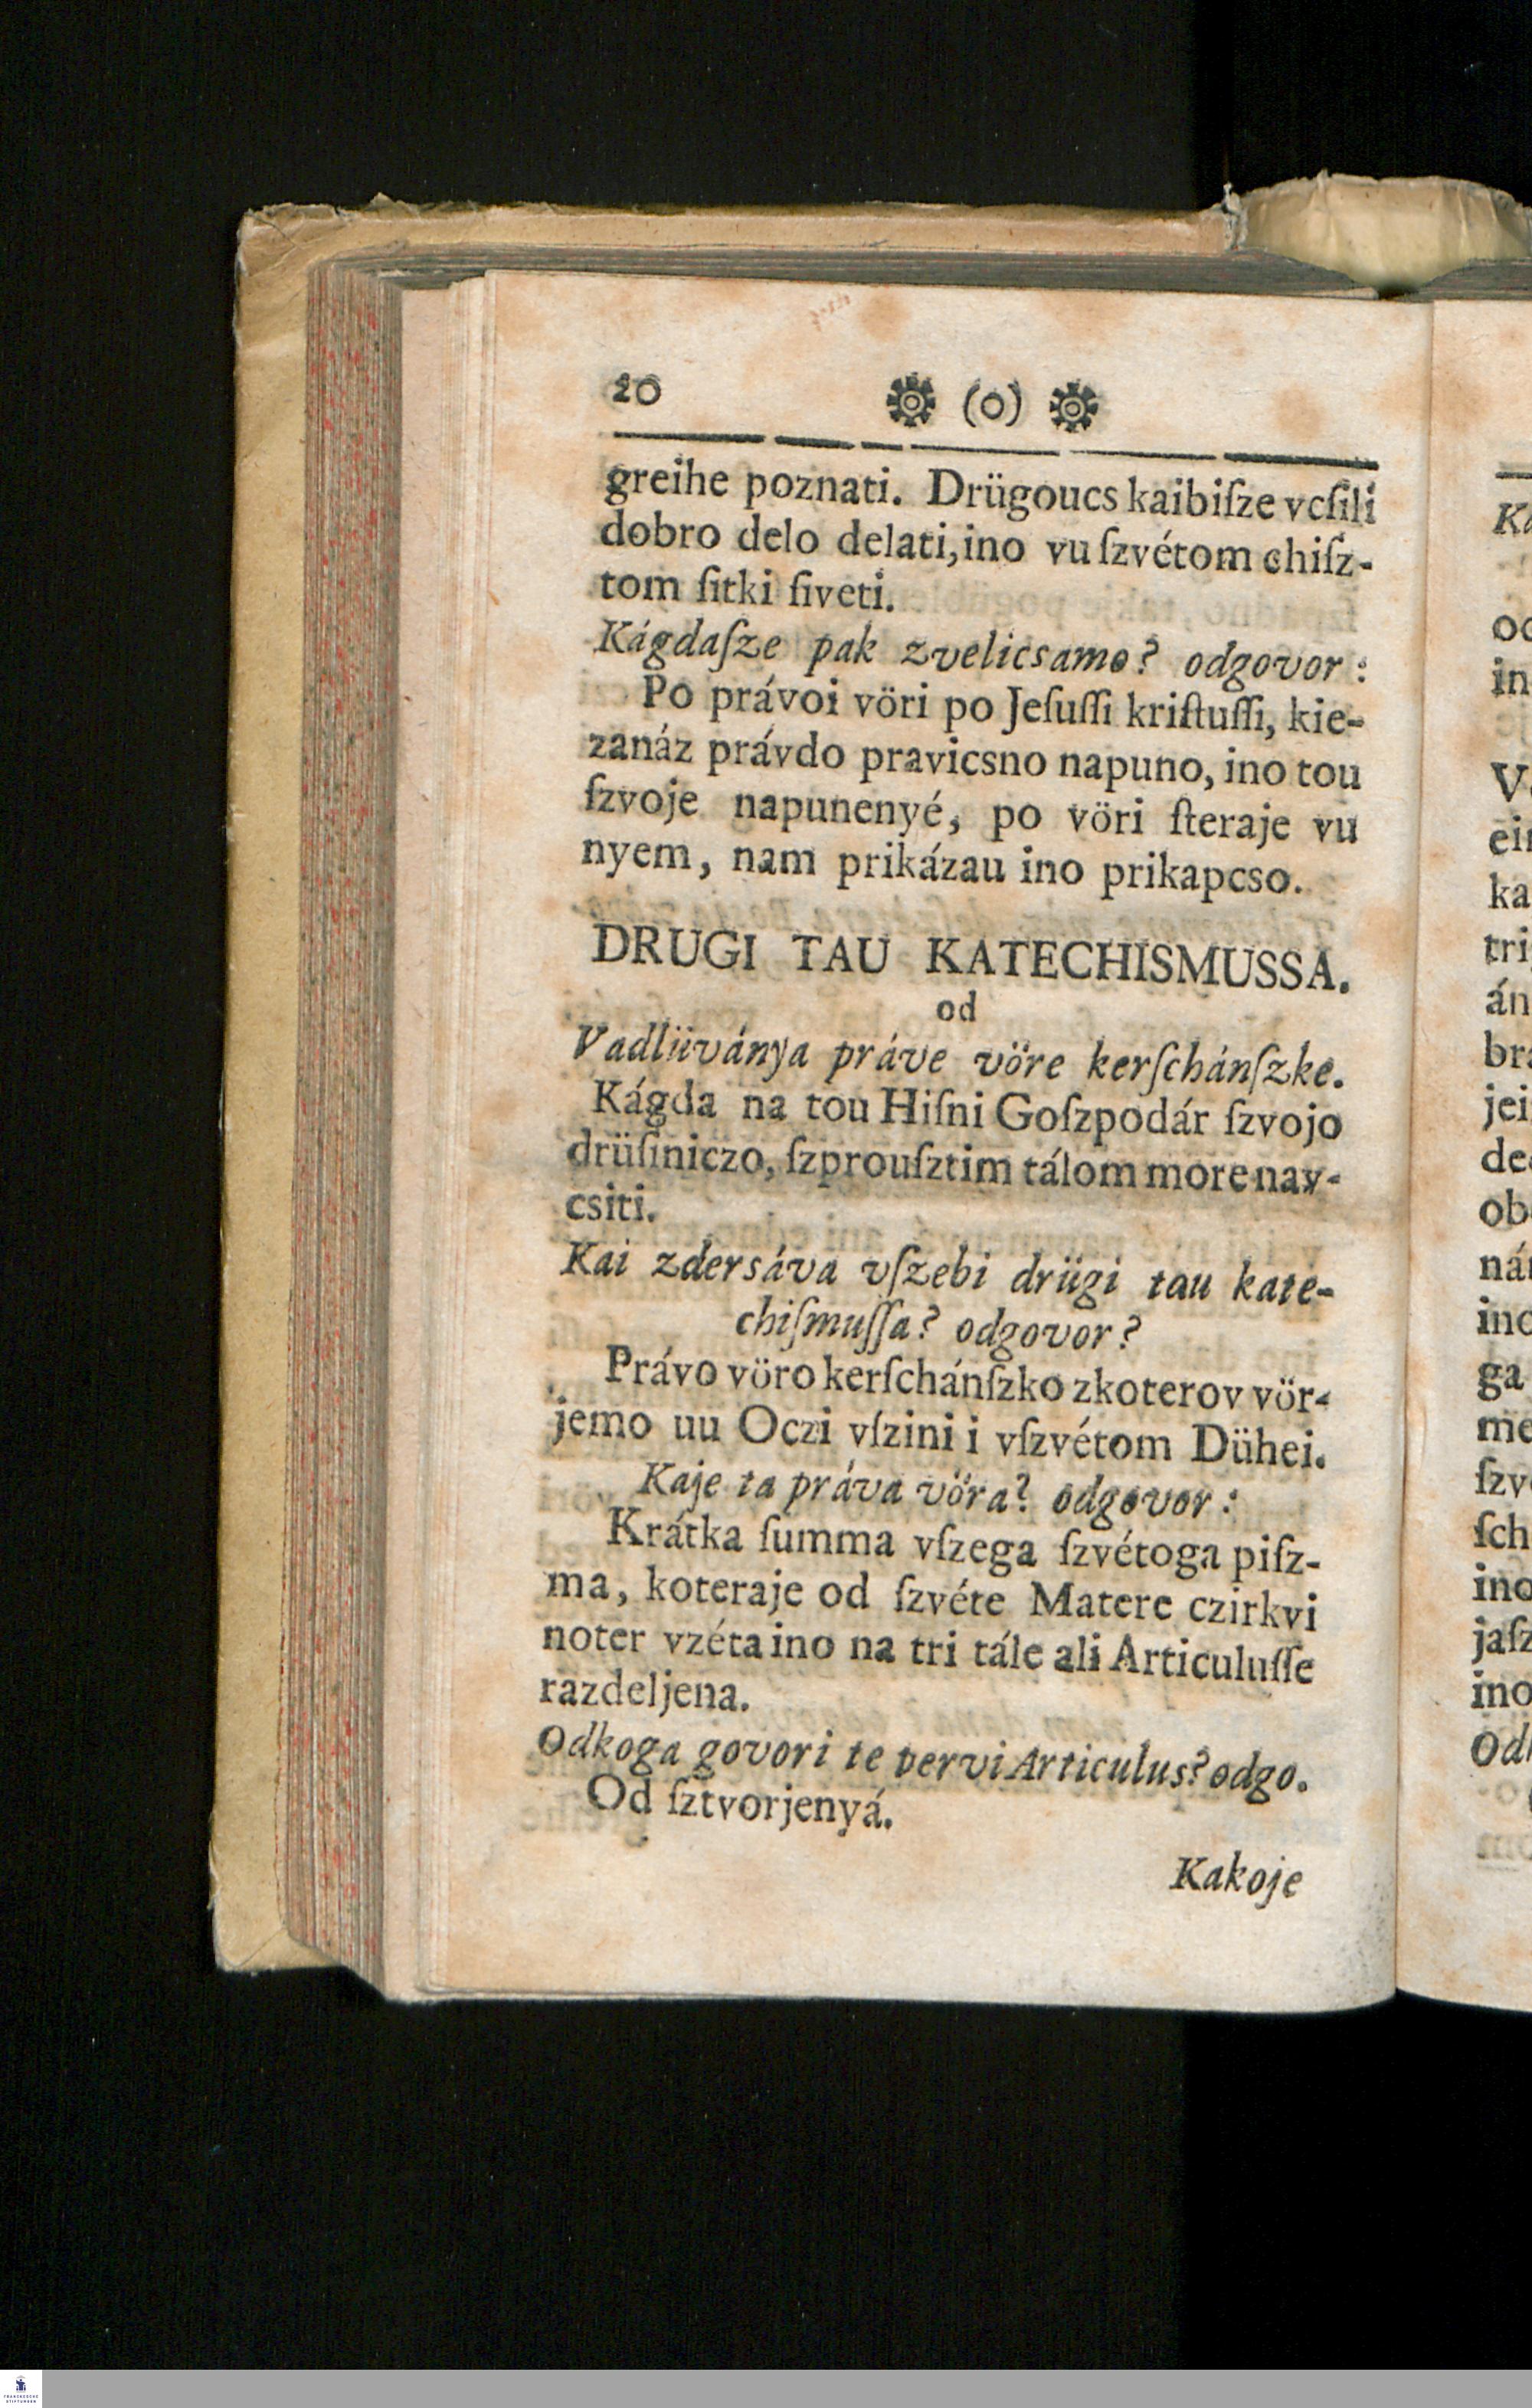 20 (o)
greihe poznati. Drügoucs kaibiſze vcſili
dobro delo delati, ino vu ſzvétom chiſz-
tom ſitki ſiveti.
Kágdaſze pak zvelicsamo? odgovor:
Po právoi vöri po Jeſuſſi kriſtuſſi, kie-
zanáz právdo pravicsno napuno, ino tou
ſzvoje napunenyé, po vöri ſteraje vu
nyem, nam prikázau ino prikapcso.
DRUGI TAU KATECHISMUSSA.
od
Vadlüványa práve vöre kerſchánſzke.
Kágda na tou Hiſni Goſzpodár ſzvojo
drüſiniczo, ſzprouſztim tálom more nav-
csiti.
Kai zdersáva vſzebi drügi tau kate-
chiſmuſſa? odgovor?
Právo vöro kerſchánſzko zkoterov vör-
jemo uu Oczi vſzini i vſzvétom Dühei.
Kaje ta práva vöra? odgovor:
Krátka ſumma vſzega ſzvétoga piſz-
ma, koteraje od ſzvéte Matere czirkvi
noter vzéta ino na tri tále ali Articuluſſe
razdeljena.
Odkoga govori te pervi Articulus? odgo.
Od ſztvorjenyá.
Kakoje